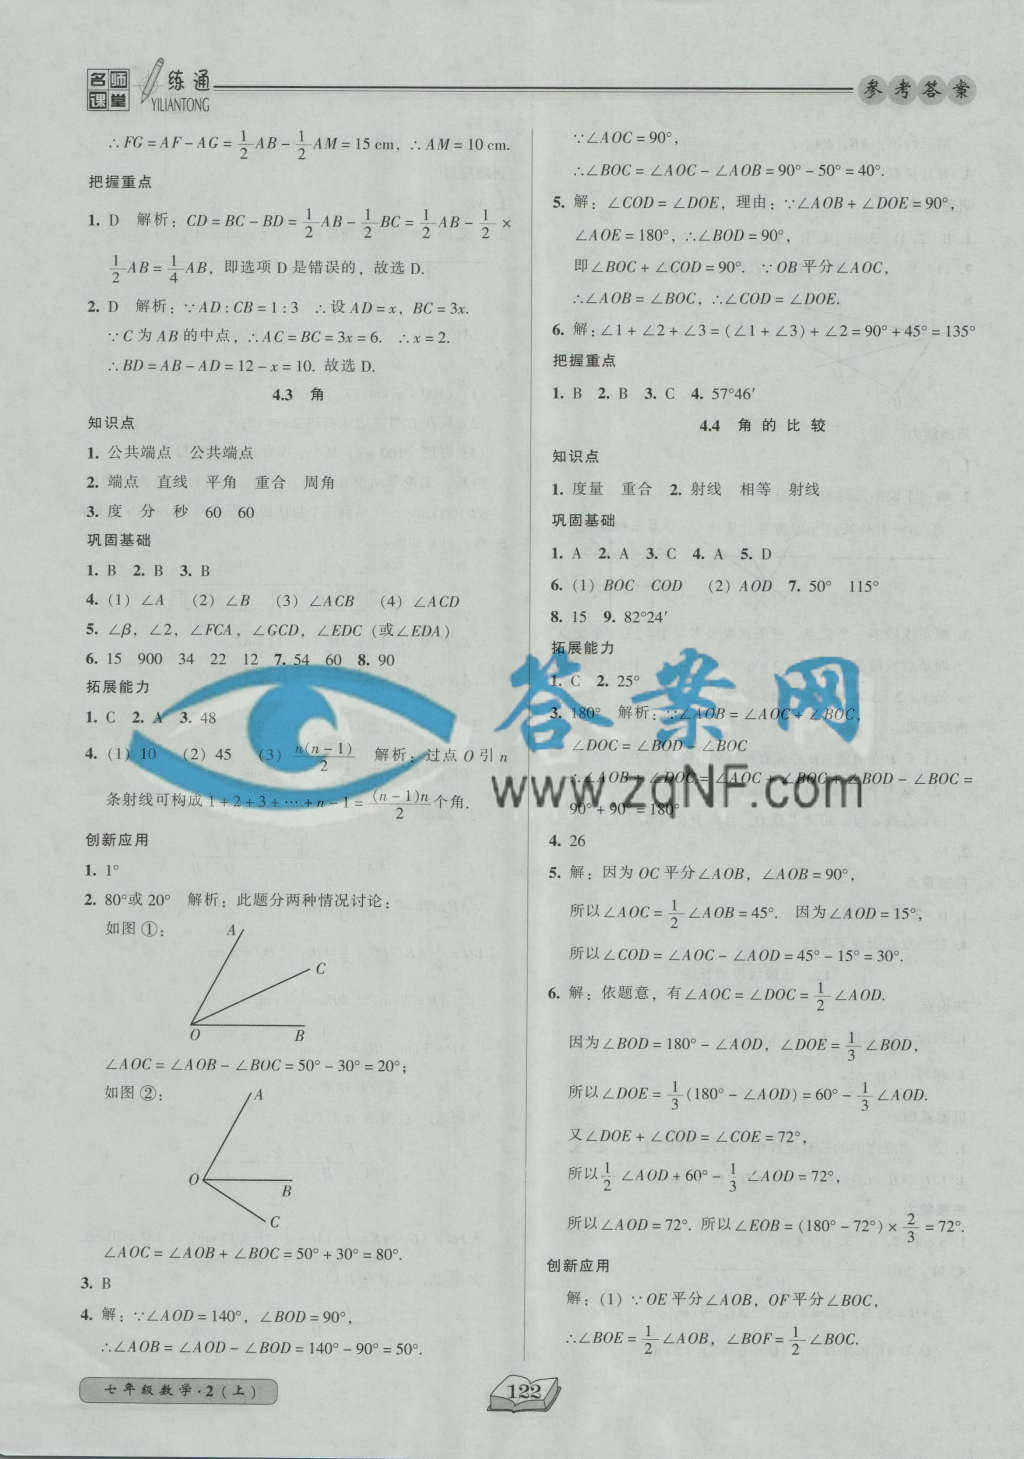 名师课堂 一练通
YILIANTONG
参考答案
∴FG=AF-AG=1/2 AB-1/2 AM=15 cm, ∴AM=10 cm.
把握重点
1. D 解析: CD=BC-BD=1/2 AB-1/2 BC=1/2 AB-1/2×
1/2 AB=1/4 AB, 即选项 D 是错误的, 故选 D.
2. D 解析: ∵AD:CB=1:3 ∴设 AD=x, BC=3x.
∵C 为 AB 的中点, ∴AC=BC=3x=6. ∴x=2.
∴BD=AB-AD=12-x=10. 故选 D.
4.3 角
知识点
1. 公共端点 公共端点
2. 端点 直线 平角 重合 周角
3. 度 分 秒 60 60
巩固基础
1. B 2. B 3. B
4. (1) ∠A (2) ∠B (3) ∠ACB (4) ∠ACD
5. ∠β, ∠2, ∠FCA, ∠GCD, ∠EDC (或∠EDA)
6. 15 900 34 22 12 7. 54 60 8. 90
拓展能力
1. C 2. A 3. 48
4. (1) 10 (2) 45 (3) n(n-1)/2 解析: 过点 O 引 n
条射线可构成 1+2+3+…+n-1=(n-1)n/2 个角.
创新应用
1. 1°
2. 80°或 20° 解析: 此题分两种情况讨论:
如图①:
A
C
O B
∠AOC=∠AOB-∠BOC=50°-30°=20°;
如图②:
A
O
B
C
∠AOC=∠AOB+∠BOC=50°+30°=80°.
3. B
4. 解: ∵∠AOD=140°, ∠BOD=90°,
∴∠AOB=∠AOD-∠BOD=140°-90°=50°.
∵∠AOC=90°,
∴∠BOC=∠AOC-∠AOB=90°-50°=40°.
5. 解: ∠COD=∠DOE, 理由: ∵∠AOB+∠DOE=90°,
∠AOE=180°, ∴∠BOD=90°,
即∠BOC+∠COD=90°. ∵OB 平分∠AOC,
∴∠AOB=∠BOC, ∴∠COD=∠DOE.
6. 解: ∠1+∠2+∠3=(∠1+∠3)+∠2=90°+45°=135°
把握重点
1. B 2. B 3. C 4. 57°46′
4.4 角的比较
知识点
1. 度量 重合 2. 射线 相等 射线
巩固基础
1. A 2. A 3. C 4. A 5. D
6. (1) BOC COD (2) AOD 7. 50° 115°
8. 15 9. 82°24′
拓展能力
1. C 2. 25°
3. 180° 解析: ∵∠AOB=∠AOC+∠BOC,
∠DOC=∠BOD-∠BOC
∴∠AOB+∠DOC=∠AOC+∠BOC+∠BOD-∠BOC=
90°+90°=180°
4. 26
5. 解: 因为 OC 平分∠AOB, ∠AOB=90°,
所以∠AOC=1/2∠AOB=45°. 因为∠AOD=15°,
所以∠COD=∠AOC-∠AOD=45°-15°=30°.
6. 解: 依题意, 有∠AOC=∠DOC=1/2∠AOD.
因为∠BOD=180°-∠AOD, ∠DOE=1/3∠BOD,
所以∠DOE=1/3(180°-∠AOD)=60°-1/3∠AOD.
又∠DOE+∠COD=∠COE=72°,
所以1/2∠AOD+60°-1/3∠AOD=72°,
所以∠AOD=72°. 所以∠EOB=(180°-72°)×2/3=72°.
创新应用
解: (1) ∵OE 平分∠AOB, OF 平分∠BOC,
∴∠BOE=1/2∠AOB, ∠BOF=1/2∠BOC.
答案网
www.zqNF.com
七年级数学·2(上)
122